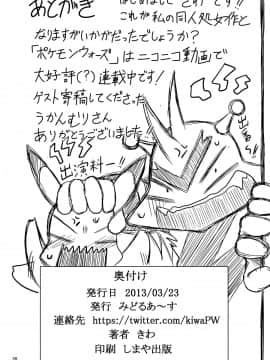 あとがき
はじめまして きわ です!
これが私の同人処女作と
なりますがいかがだったでしょうか?
「ポケモンウォーズ」はニコニコ動画で
大好評(?)連載中です!
ゲスト寄稿してくださった
うかんむりさん
ありがとうございました!!
奥付け
発行日 2013/03/23
発行 みどるあ〜す
連絡先 https://twitter.com/kiwaPW
著者 きわ
印刷 しまや出版